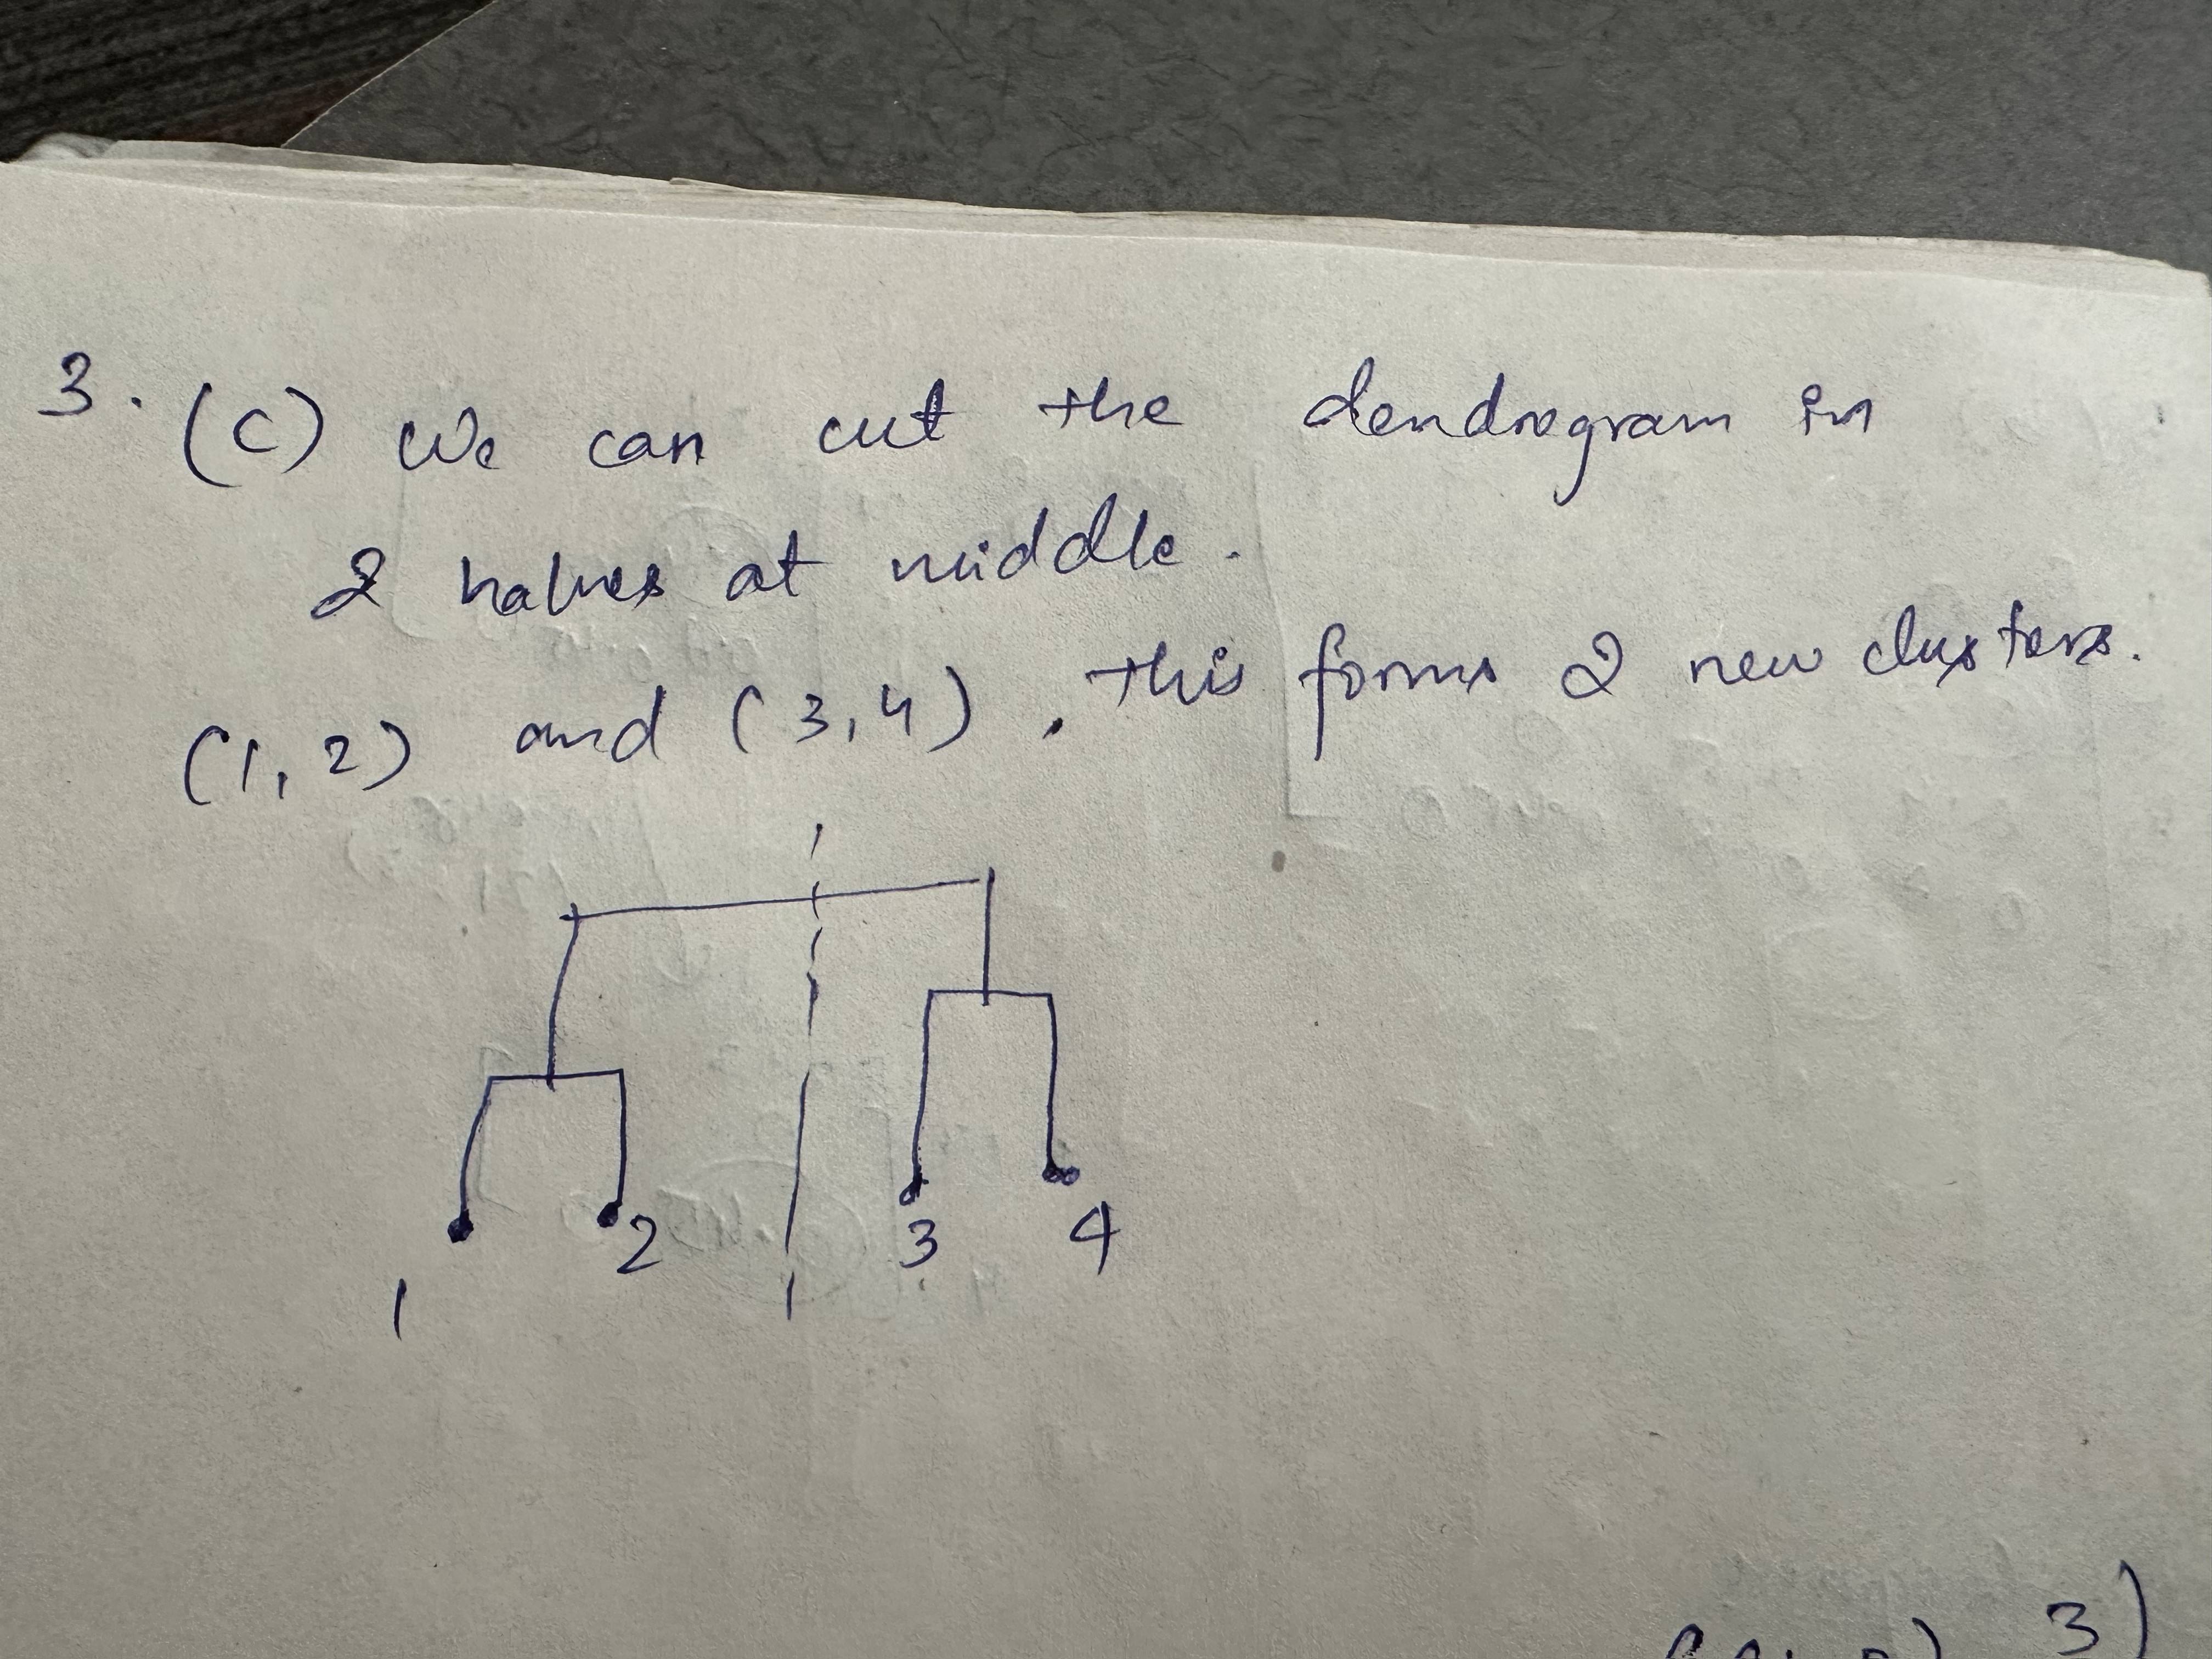 3. (C) We can cut the dendrogram in
2 halves at middle.
(1, 2) and (3, 4). This forms 2 new clusters.
1 2 3 4
3)